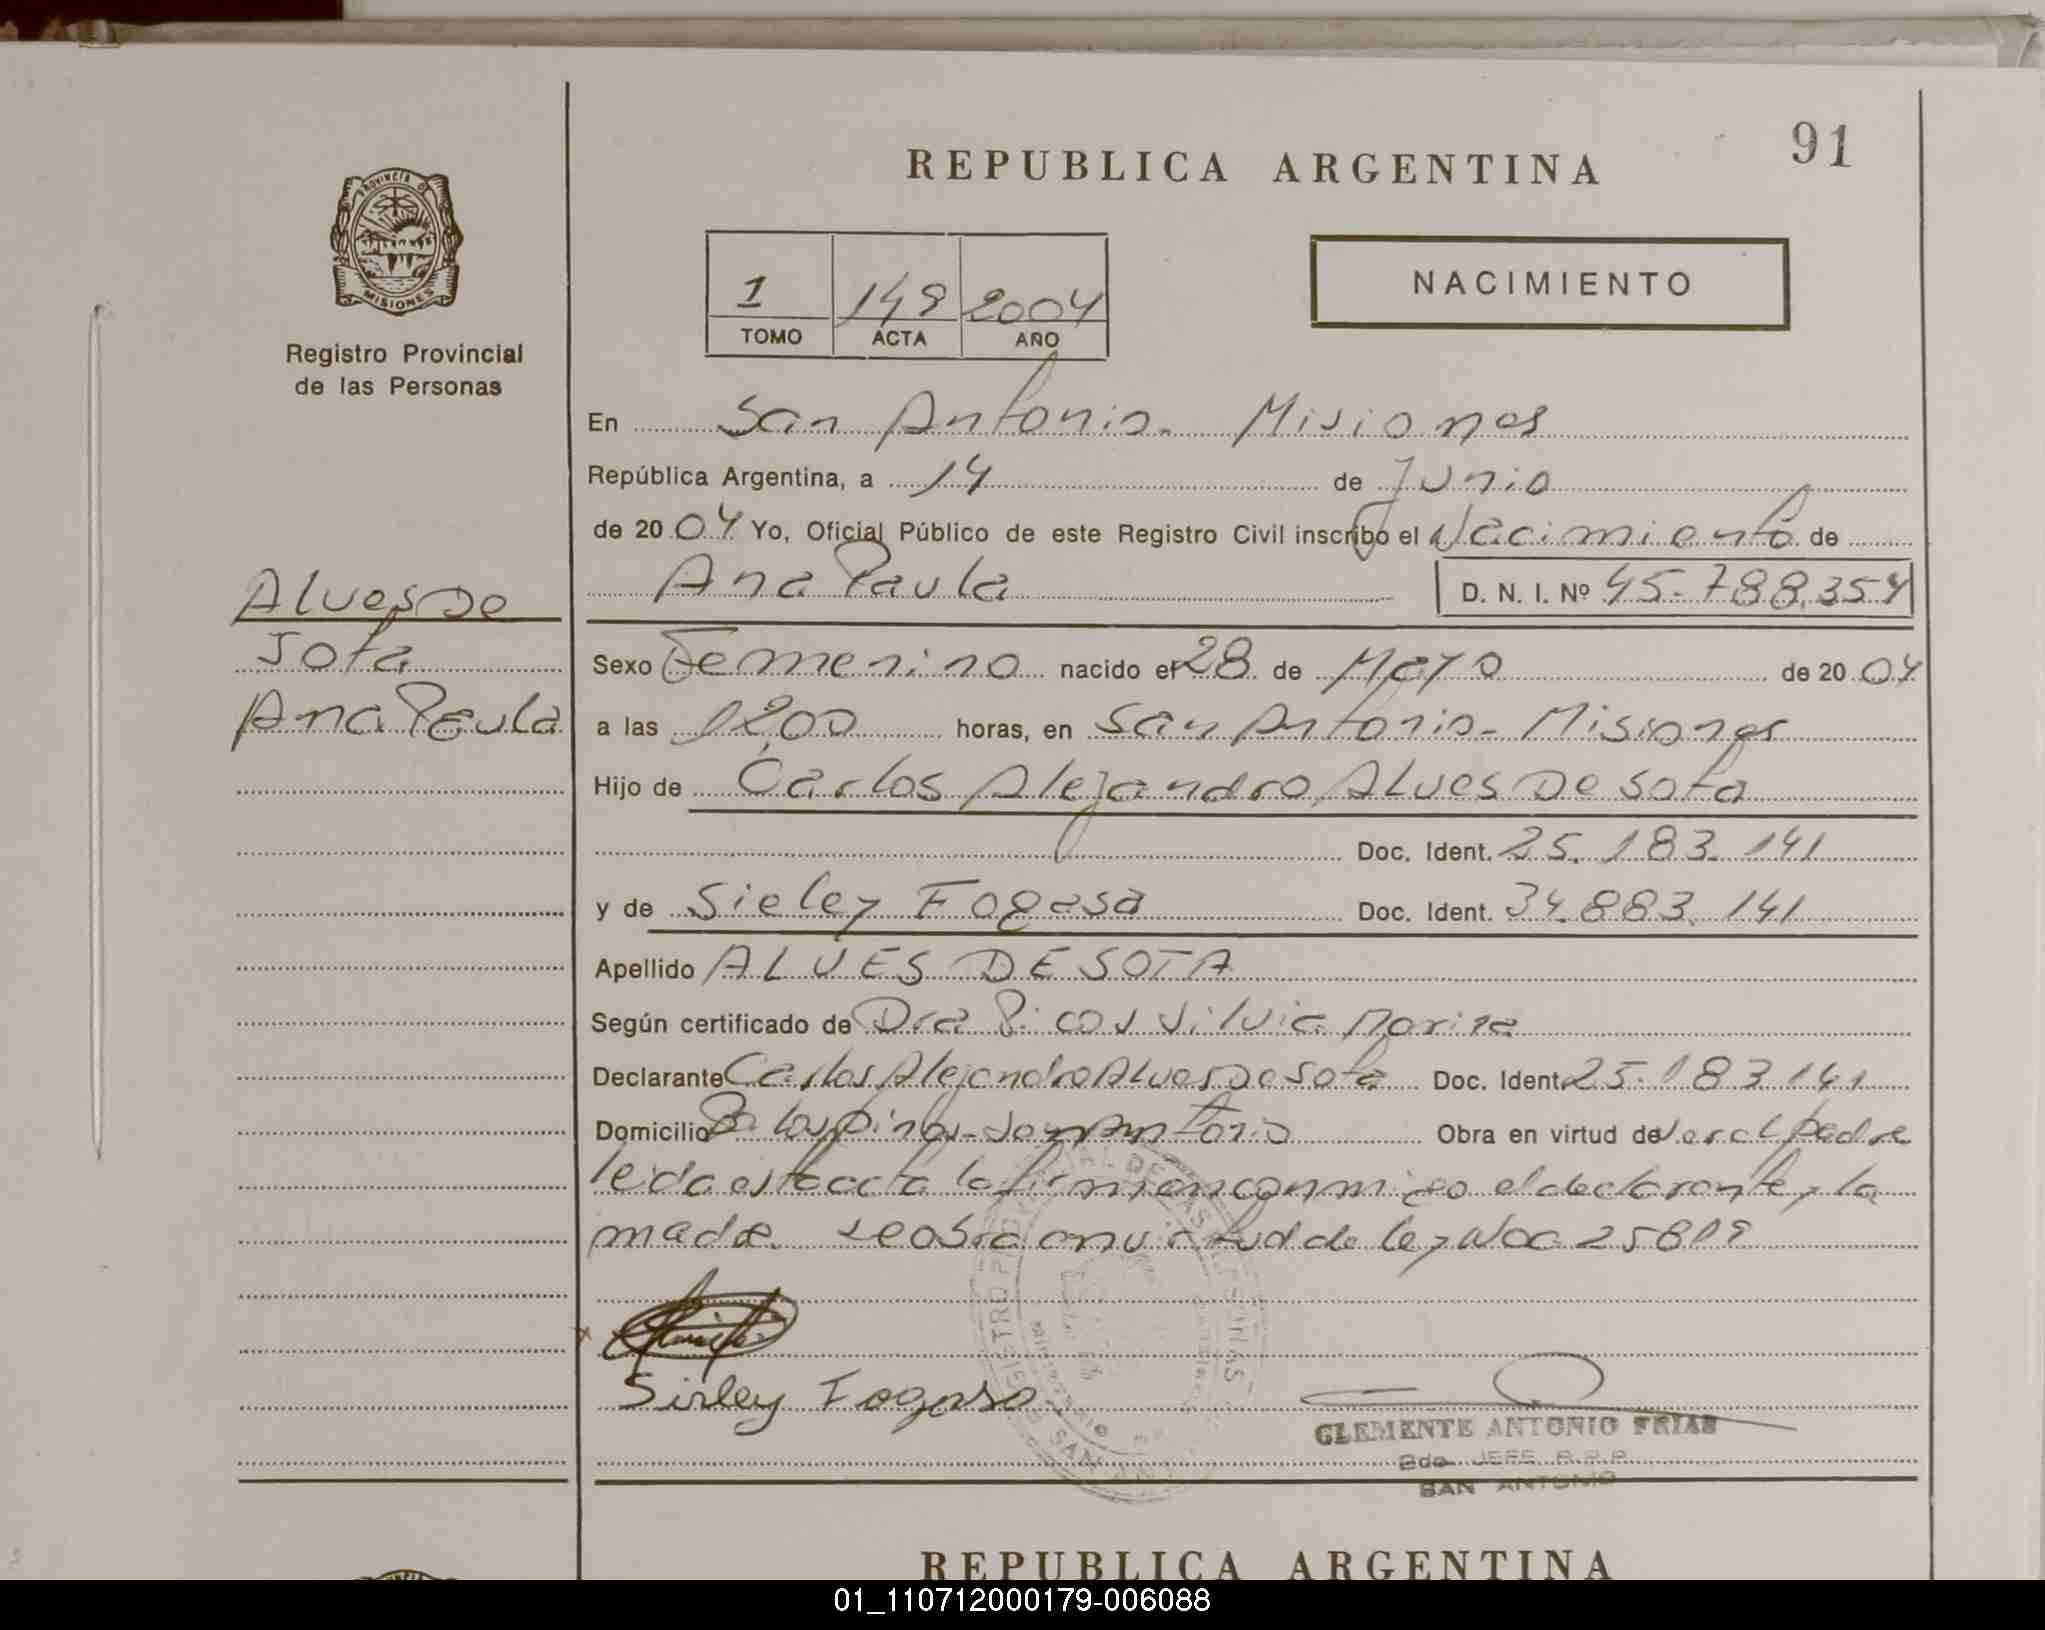 91
REPUBLICA ARGENTINA
PROVINCIA DE
MISIONES
Registro Provincial
de las Personas
1 149 2004
TOMO ACTA AÑO
NACIMIENTO
En San Antonio - Misiones
República Argentina, a 14 de Junio
de 2004 Yo, Oficial Público de este Registro Civil inscribo el Nacimiento de
Ana Paula D. N. I. Nº 45.788.354
Alves De
Sota
Ana Paula
Sexo Femenino nacido el 28 de Mayo de 2004
a las 1200 horas, en San Antonio - Misiones
Hijo de Carlos Alejandro Alves De Sota
Doc. Ident. 25.183.141
y de Sirley Fogasa Doc. Ident. 34.883.141
Apellido ALVES DE SOTA
Según certificado de Dra Picos Silvia Marina
Declarante Carlos Alejandro Alves De Sota Doc. Ident. 25.183.141
Domicilio Bº Los Pinos - San Antonio Obra en virtud de ser el padre
leida esta acta la firman conmigo el declarante y la
madre. se obra en virtud de ley Nac 25819
Sirley Fogaso
REGISTRO PROVINCIAL DE LAS PERSONAS
CLEMENTE ANTONIO FRIAS
2do JEFE R.P.P.
SAN ANTONIO
REPUBLICA ARGENTINA
01_110712000179-006088